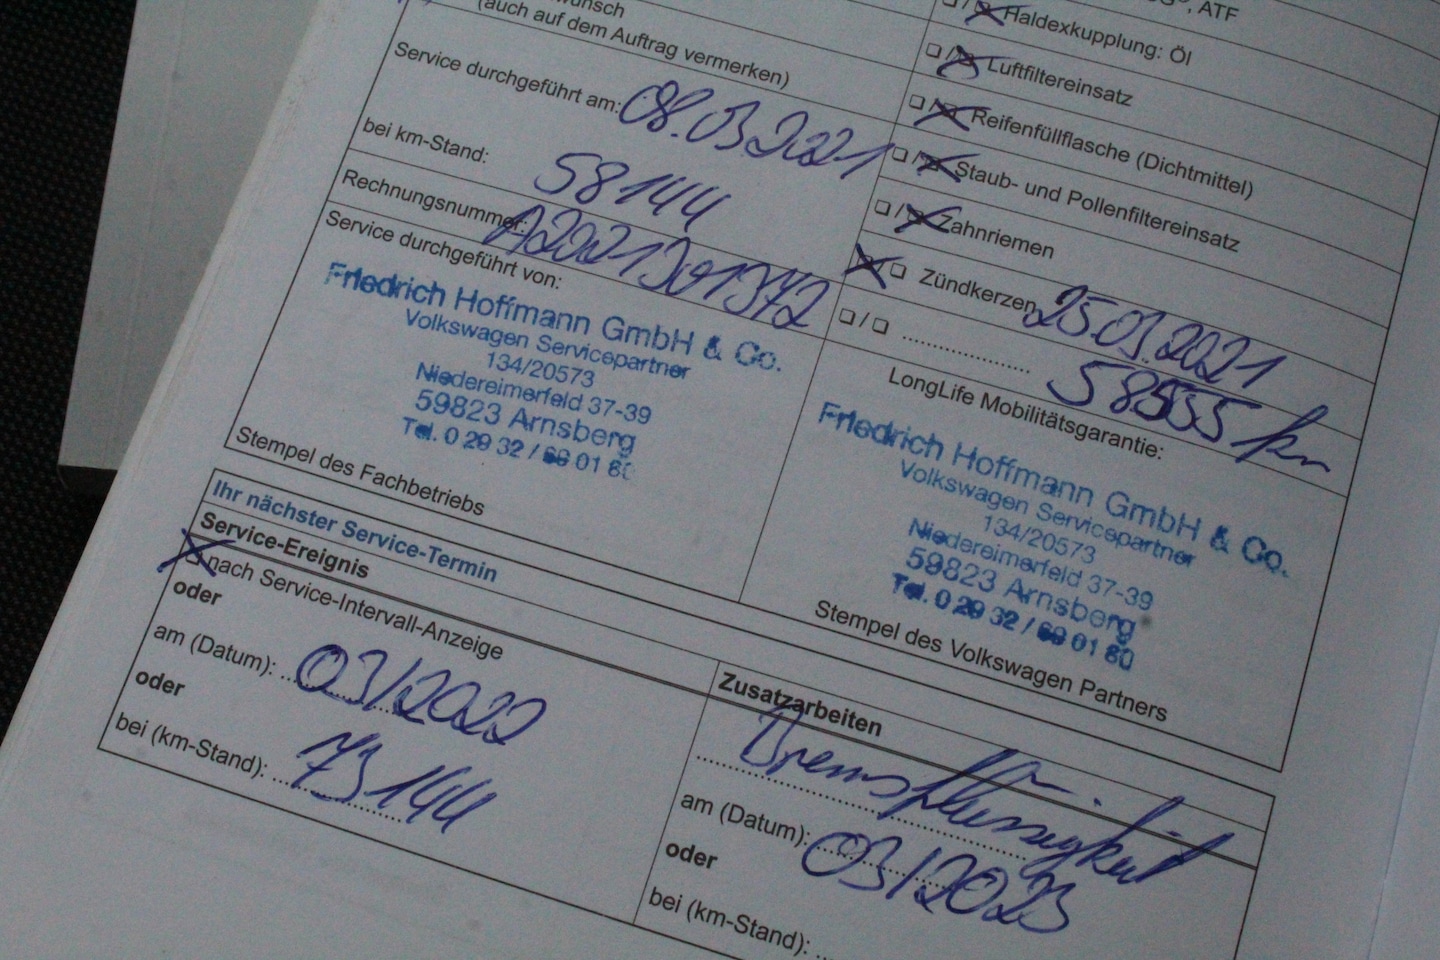 wunsch
(auch auf dem Auftrag vermerken)
Service durchgeführt am: 08.03.2021
bei km-Stand: 58144
Rechnungsnummer:
Service durchgeführt von:
Friedrich Hoffmann GmbH & Co.
Volkswagen Servicepartner
134/20573
Niedereimerfeld 37-39
59823 Arnsberg
Tel. 0 29 32 /
Stempel des Fachbetriebs
, ATF
Haldexkupplung: Öl
Luftfiltereinsatz
Reifenfüllflasche (Dichtmittel)
Staub- und Pollenfiltereinsatz
Zahnriemen
Zündkerzen 25.03.2021
58555 km
LongLife Mobilitätsgarantie:
Friedrich Hoffmann GmbH & Co.
Volkswagen Servicepartner
134/20573
Niedereimerfeld 37-39
59823 Arnsberg
Tel. 0 29 32 / 01 80
Stempel des Volkswagen Partners
Ihr nächster Service-Termin
Service-Ereignis
nach Service-Intervall-Anzeige
oder
am (Datum): 03/2022
oder
bei (km-Stand): 73144
Zusatzarbeiten
Bremsflüssigkeit
am (Datum): 03/2023
oder
bei (km-Stand):